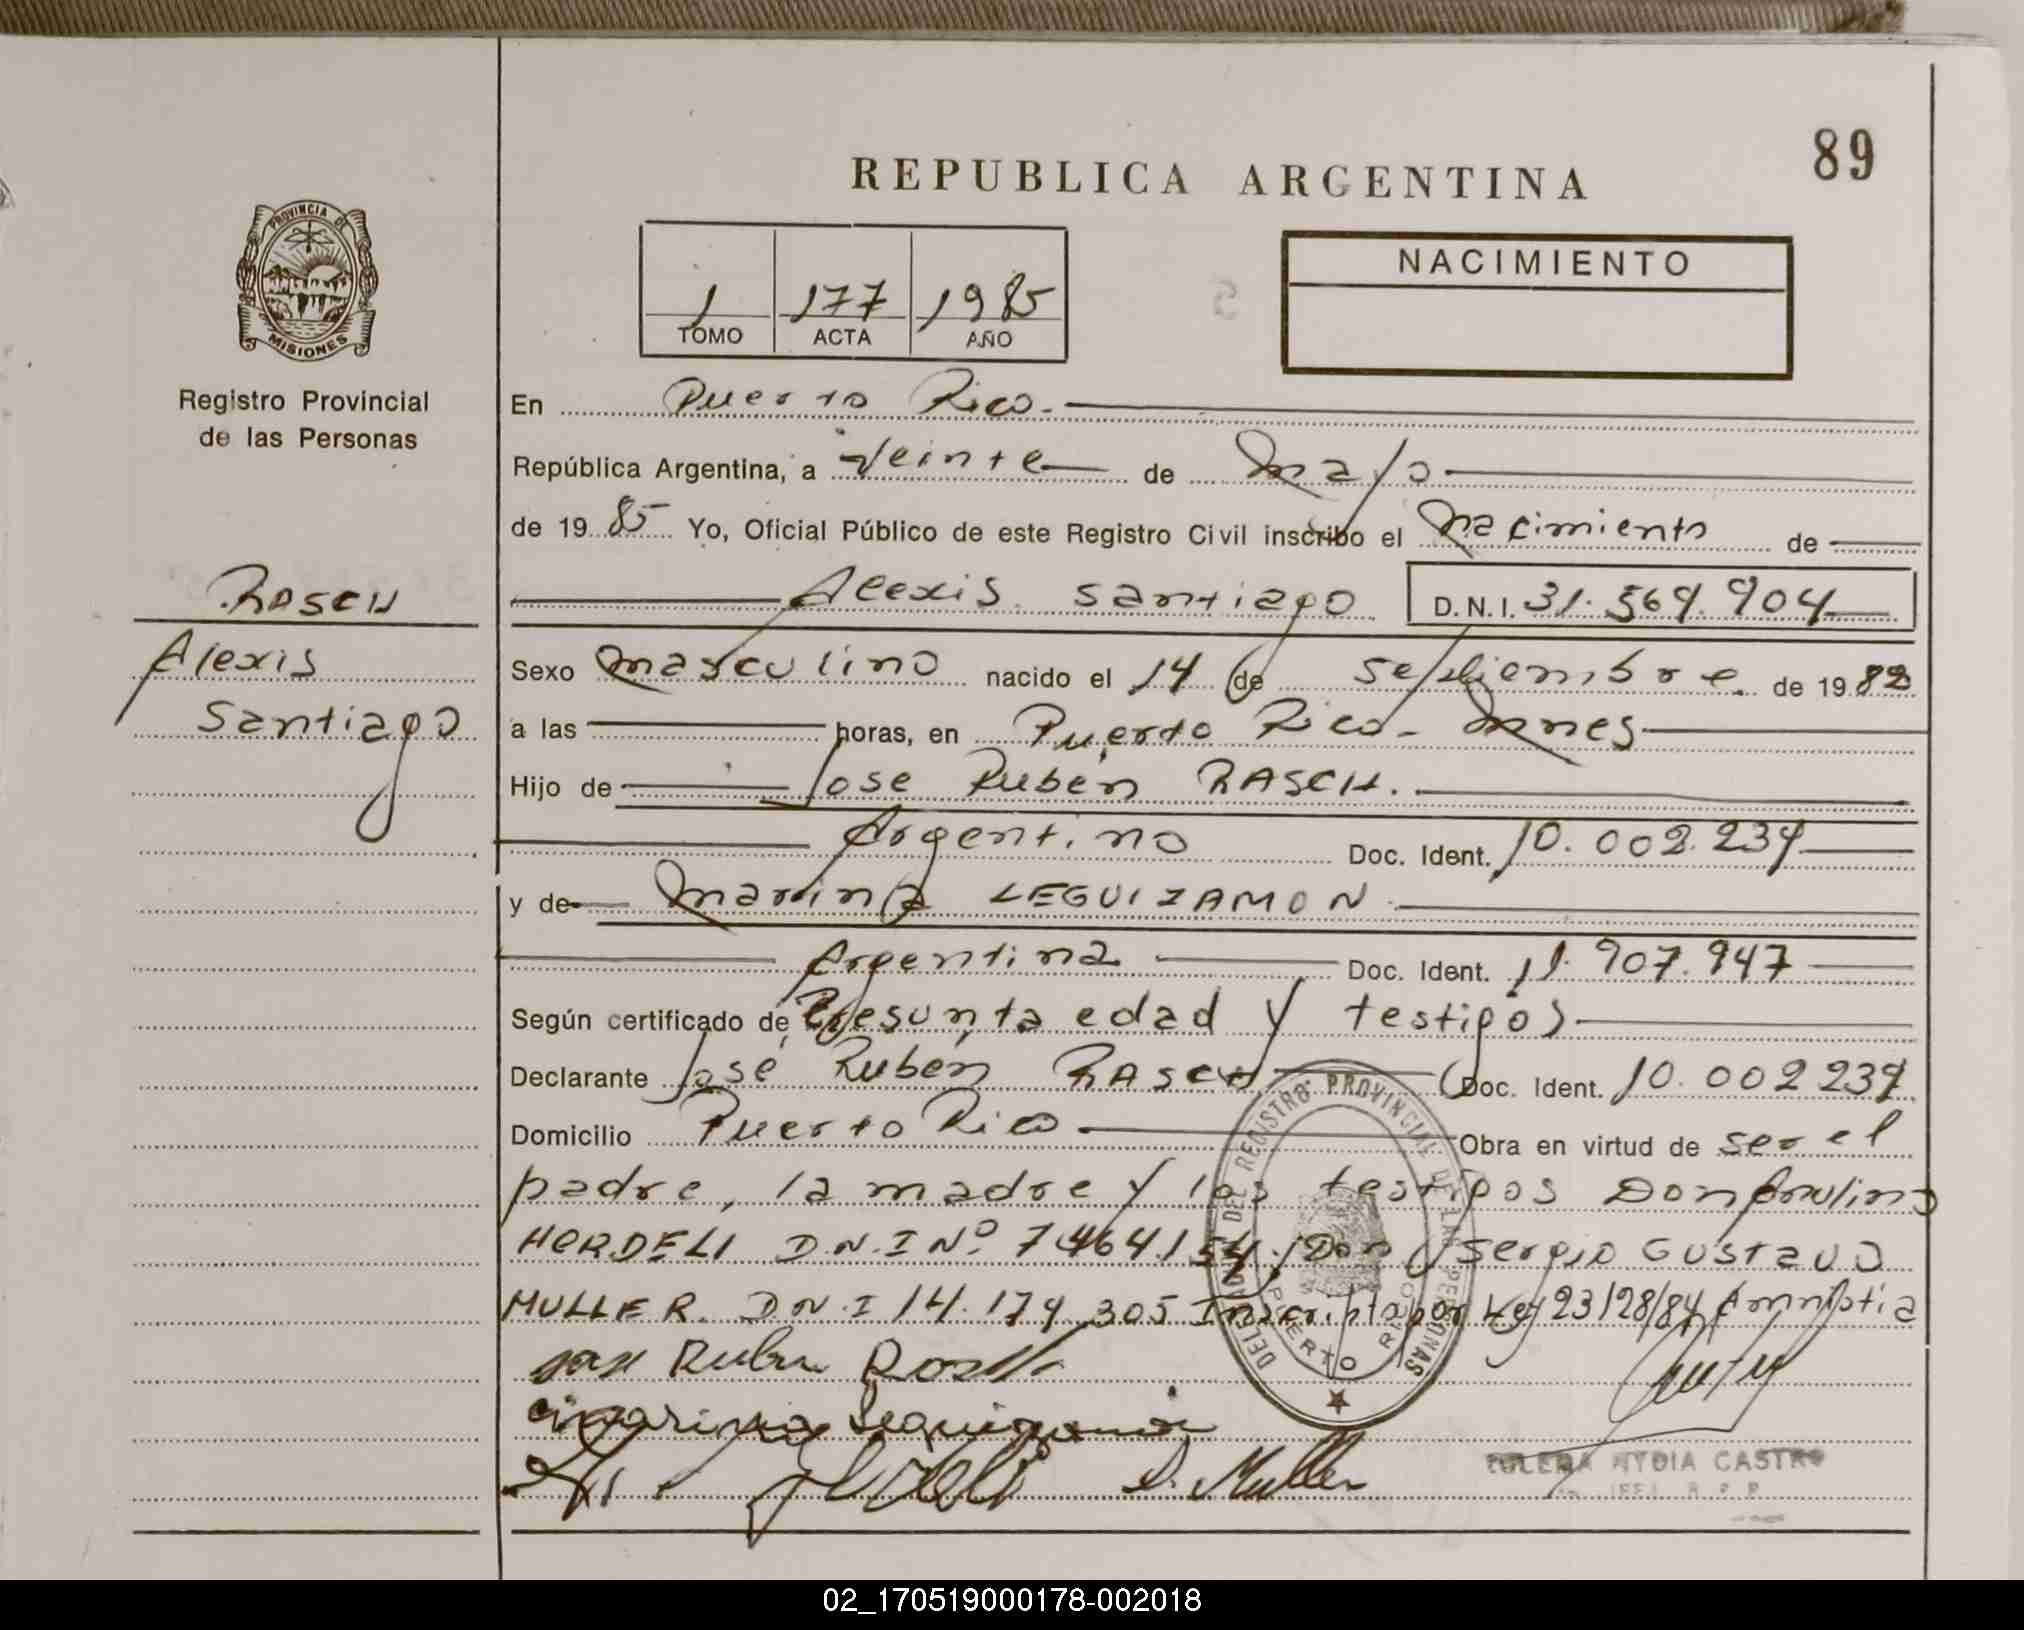 89
REPUBLICA ARGENTINA
PROVINCIA DE
MISIONES
Registro Provincial
de las Personas
1 177 1985
TOMO ACTA AÑO
NACIMIENTO
En Puerto Rico.
República Argentina, a veinte de Mayo
de 1985 Yo, Oficial Público de este Registro Civil inscribo el Nacimiento de
RASCH
Alexis
Santiago
Alexis Santiago D.N.I. 31.569.904
Sexo Masculino nacido el 14 de septiembre de 1982
a las horas, en Puerto Rico - Mnes
Hijo de Jose Rubén RASCH.
Argentino Doc. Ident. 10.002.239
y de Marina LEGUIZAMON
Argentina Doc. Ident. 11.907.947
Según certificado de Presunta edad y testigos
Declarante José Rubén RASCH Doc. Ident. 10.002239
Domicilio Puerto Rico Obra en virtud de ser el
padre, la madre y los testigos Don Paulino
HERDELI D.N.I Nº 7.464.154; Don Sergio Gustavo
MULLER. D.N.I 14.174.305 Inscripta por Ley 23128/84 Amnistia
DELEGADO DEL REGISTRO PROVINCIAL DE LAS PERSONAS
PUERTO RICO
Jose Ruben
Marina Leguizamon
S. Muller
NYDIA CASTRO
02_170519000178-002018